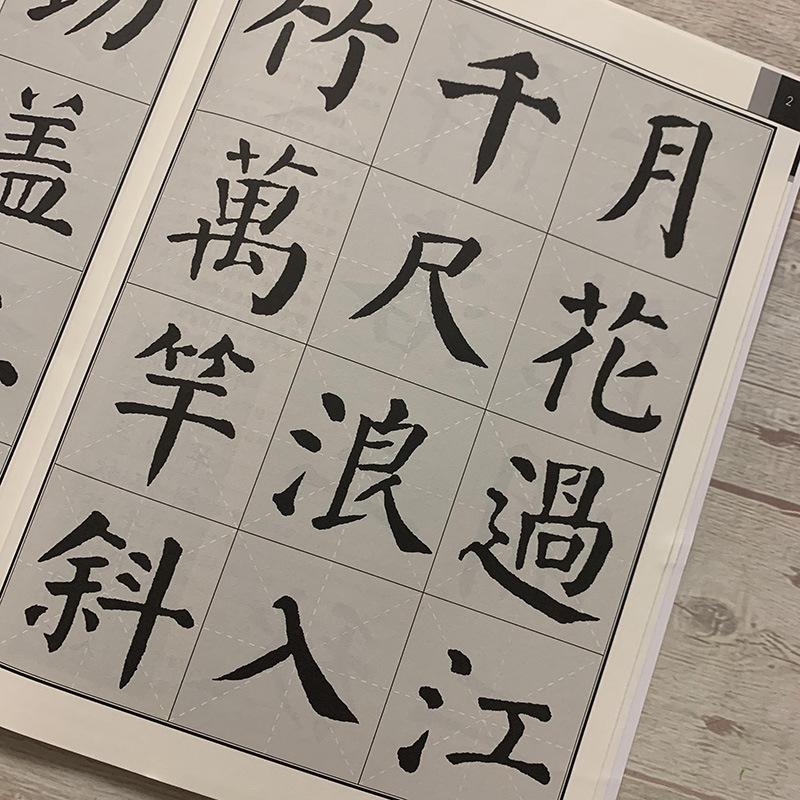 2
月花過江
千尺浪入
竹萬竿斜
盖